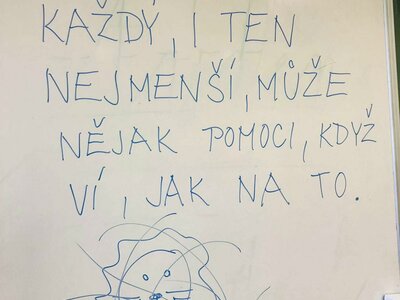 KAŽDÝ, I TEN
NEJMENŠÍ, MŮŽE
NĚJAK POMOCI, KDYŽ
VÍ, JAK NA TO.